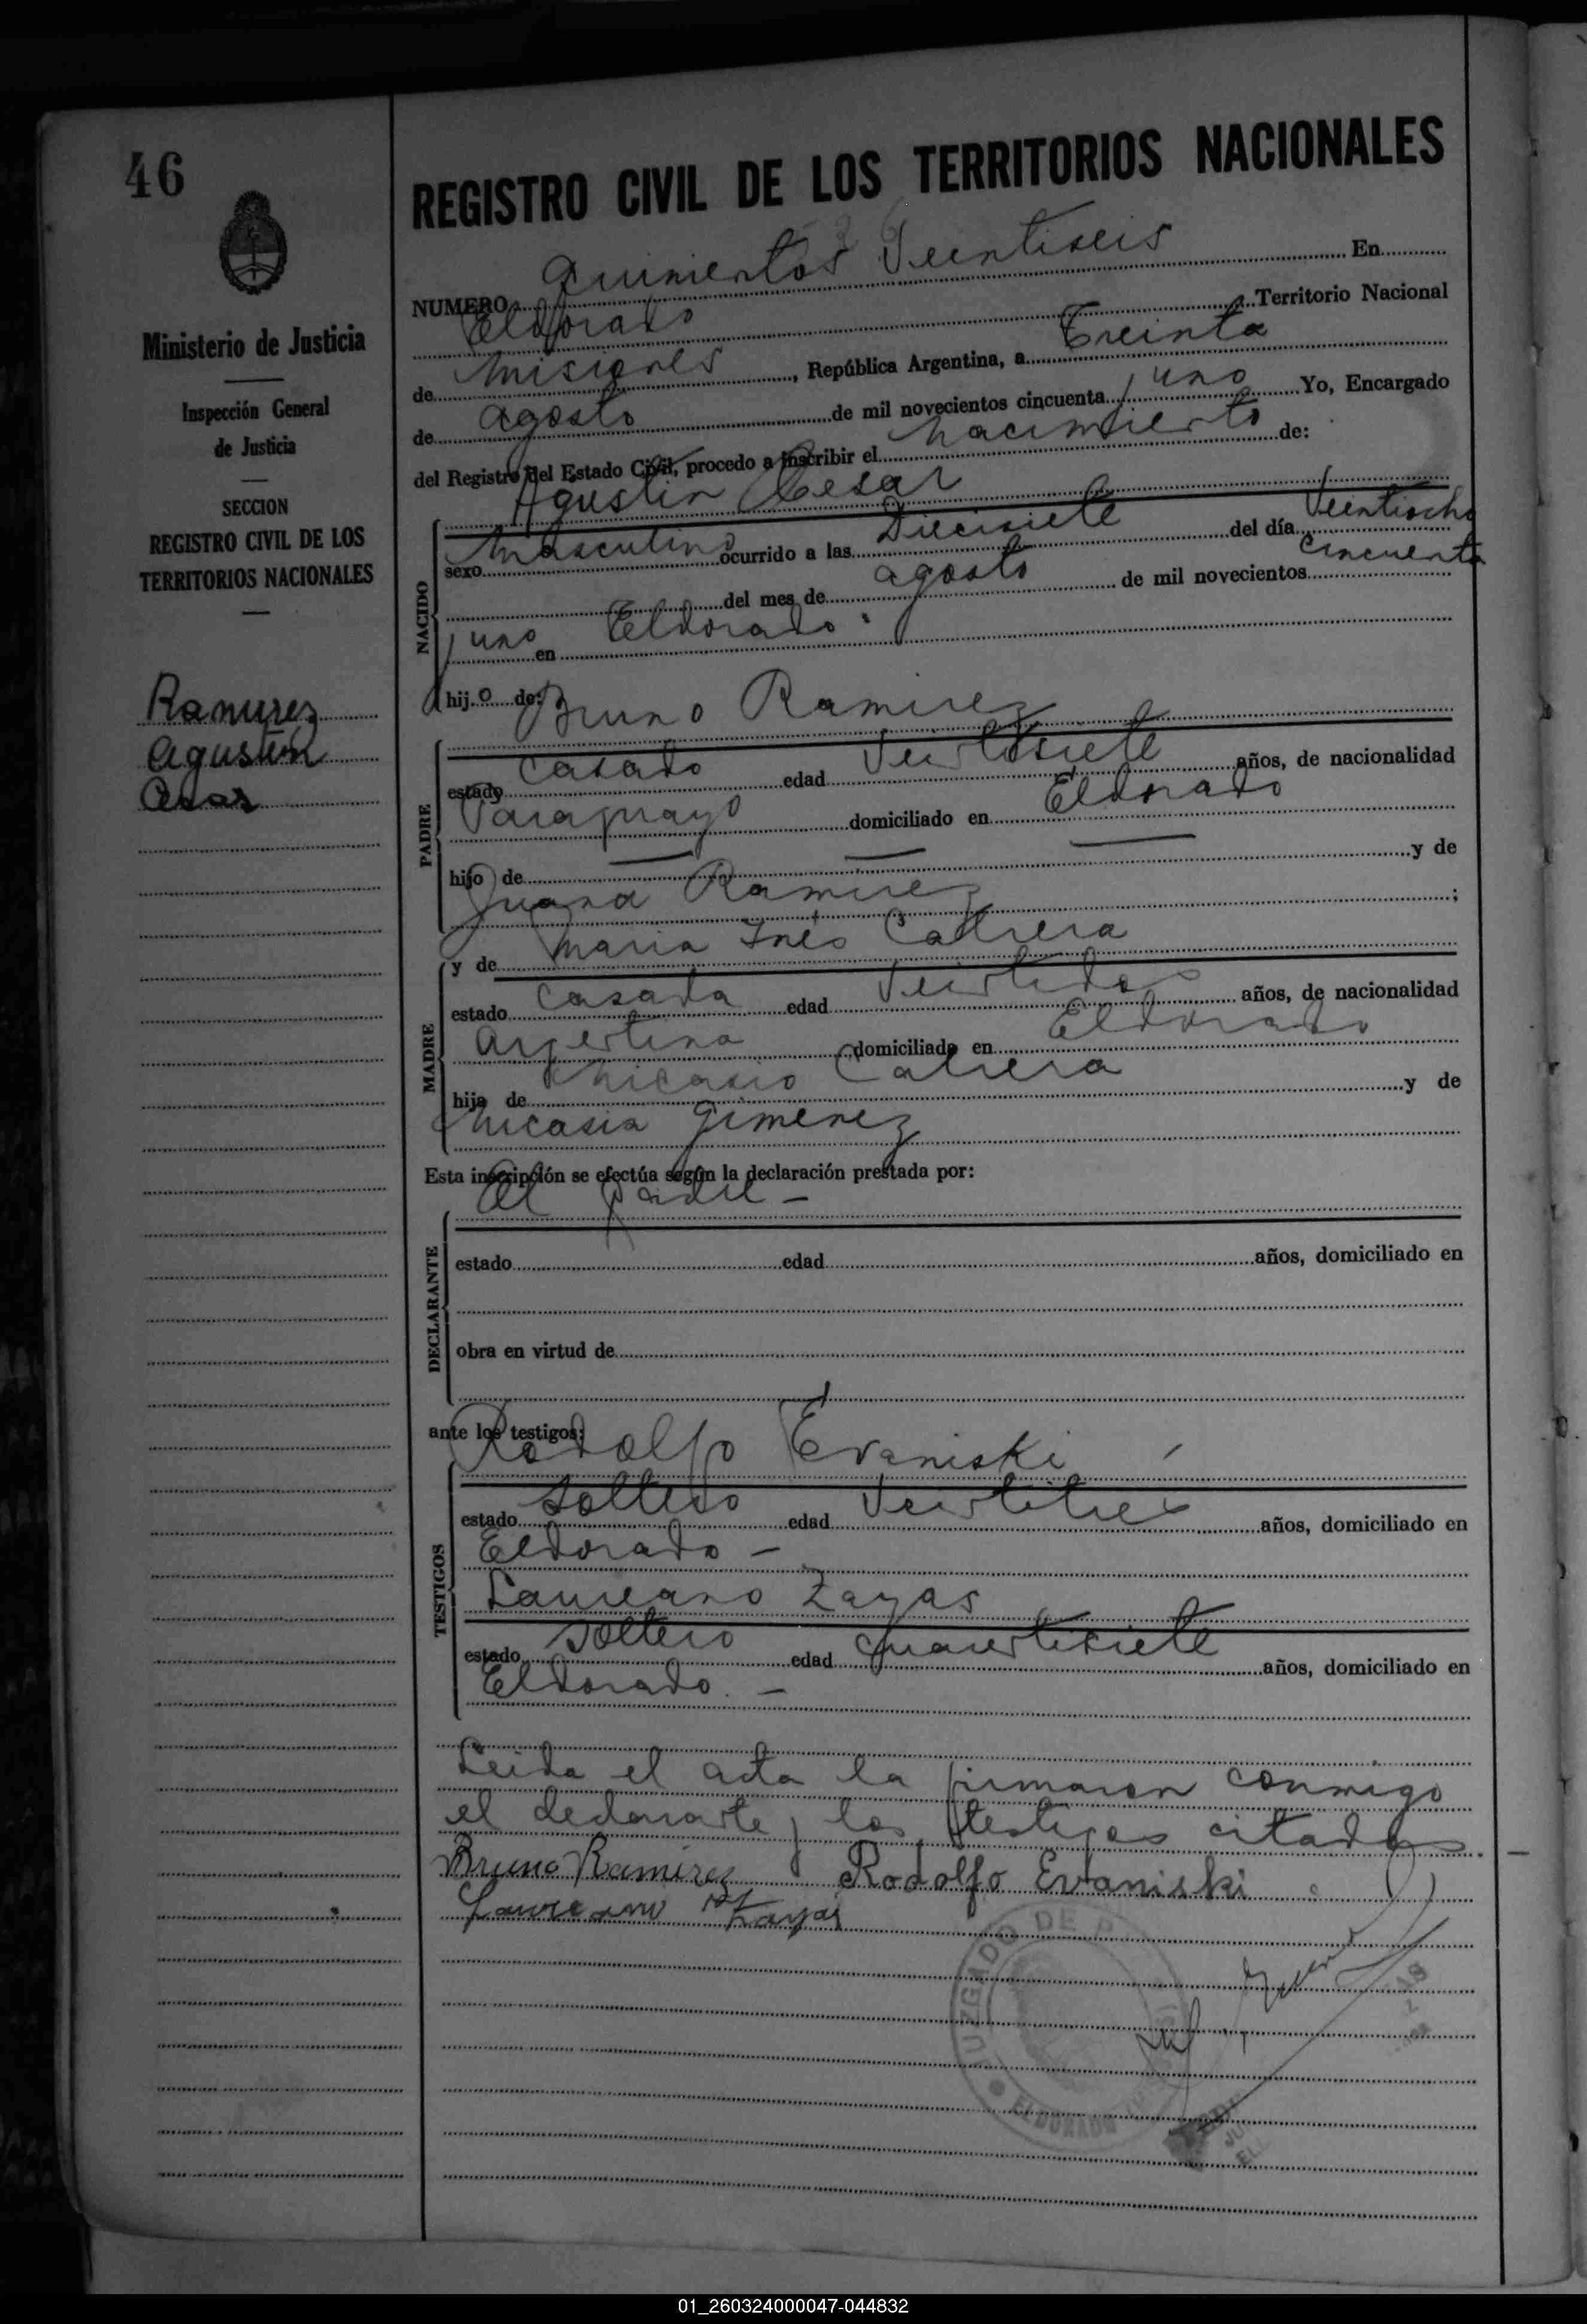 46
Ministerio de Justicia
Inspección General
de Justicia
SECCION
REGISTRO CIVIL DE LOS
TERRITORIOS NACIONALES
Ramirez
Agustin
Cesar
REGISTRO CIVIL DE LOS TERRITORIOS NACIONALES
NUMERO Quinientos Veintiseis En
Eldorado Territorio Nacional
de Misiones, República Argentina, a Treinta
de agosto de mil novecientos cincuenta y uno Yo, Encargado
del Registro del Estado Civil, procedo a inscribir el nacimiento de:
Agustin Cesar
NACIDO
sexo masculino ocurrido a las Diecisiete del día Veintiocho
del mes de agosto de mil novecientos cincuenta
y uno en Eldorado
hijo de: Bruno Ramirez
PADRE
estado casado edad Veintisiete años, de nacionalidad
Paraguayo domiciliado en Eldorado
hijo de y de
Juana Ramirez ;
y de Maria Inés Cabrera
MADRE
estado casada edad Veintidos años, de nacionalidad
argentina domiciliada en Eldorado
hija de Nicasio Cabrera y de
Nicasia Gimenez
Esta inscripción se efectúa según la declaración prestada por:
El padre -
DECLARANTE
estado edad años, domiciliado en
obra en virtud de
ante los testigos:
Rodolfo Evaniski
TESTIGOS
estado soltero edad Veintitres años, domiciliado en
Eldorado -
Laureano Zayas
estado soltero edad cuarentisiete años, domiciliado en
Eldorado. -
Leida el acta la firmaron conmigo
el declarante y los testigos citados. -
Bruno Ramirez Rodolfo Evaniski
Laureano Zayas
JUZGADO DE P
ELDORADO
01_260324000047-044832